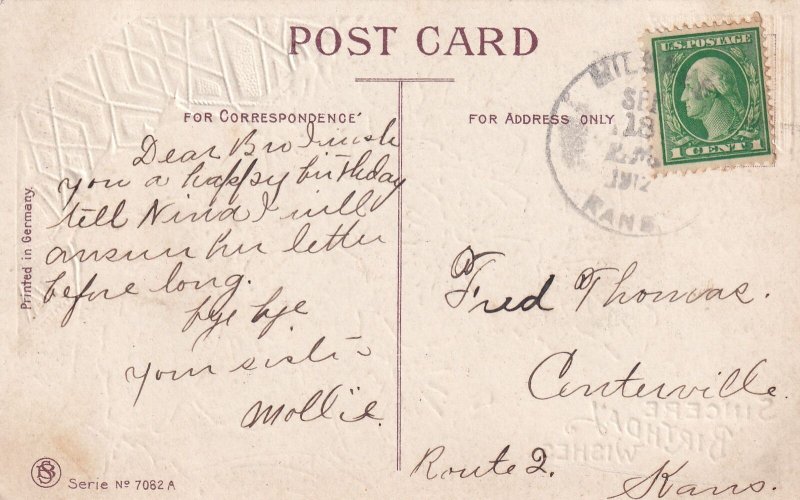 POST CARD
FOR CORRESPONDENCE
FOR ADDRESS ONLY
Dear Bro I wish
you a happy birthday
tell Nina I will
answer her letter
before long.
bye bye
your sister
Mollie.
Fred Thomas.
Centerville
Route 2.
Kans.
U.S. POSTAGE
1 CENT 1
SEP
18
1912
KANS
Printed in Germany.
Serie No 7082 A
SINCERE
BIRTHDAY
WISHES